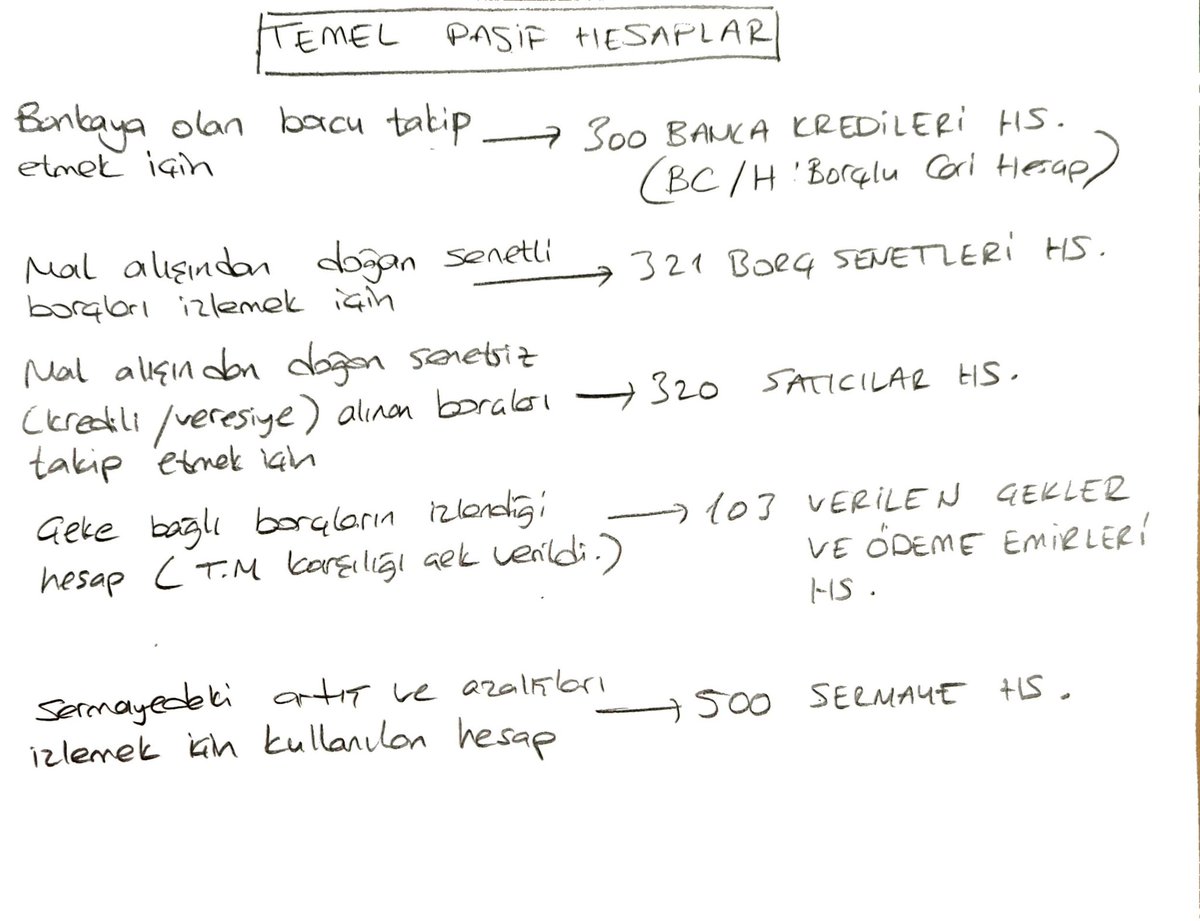 TEMEL PASİF HESAPLAR
Bankaya olan borcu takip → 300 BANKA KREDİLERİ HS.
etmek için (BC/H : Borçlu Cari Hesap)
Mal alışından doğan senetli → 321 BORÇ SENETLERİ HS.
borçları izlemek için
Mal alışından doğan senetsiz
(kredili/veresiye) alınan borçları → 320 SATICILAR HS.
takip etmek için
Çeke bağlı borçların izlendiği → 103 VERİLEN ÇEKLER
hesap (T.M karşılığı çek verildi.) VE ÖDEME EMİRLERİ
HS.
Sermayedeki artış ve azalışları → 500 SERMAYE HS.
izlemek için kullanılan hesap